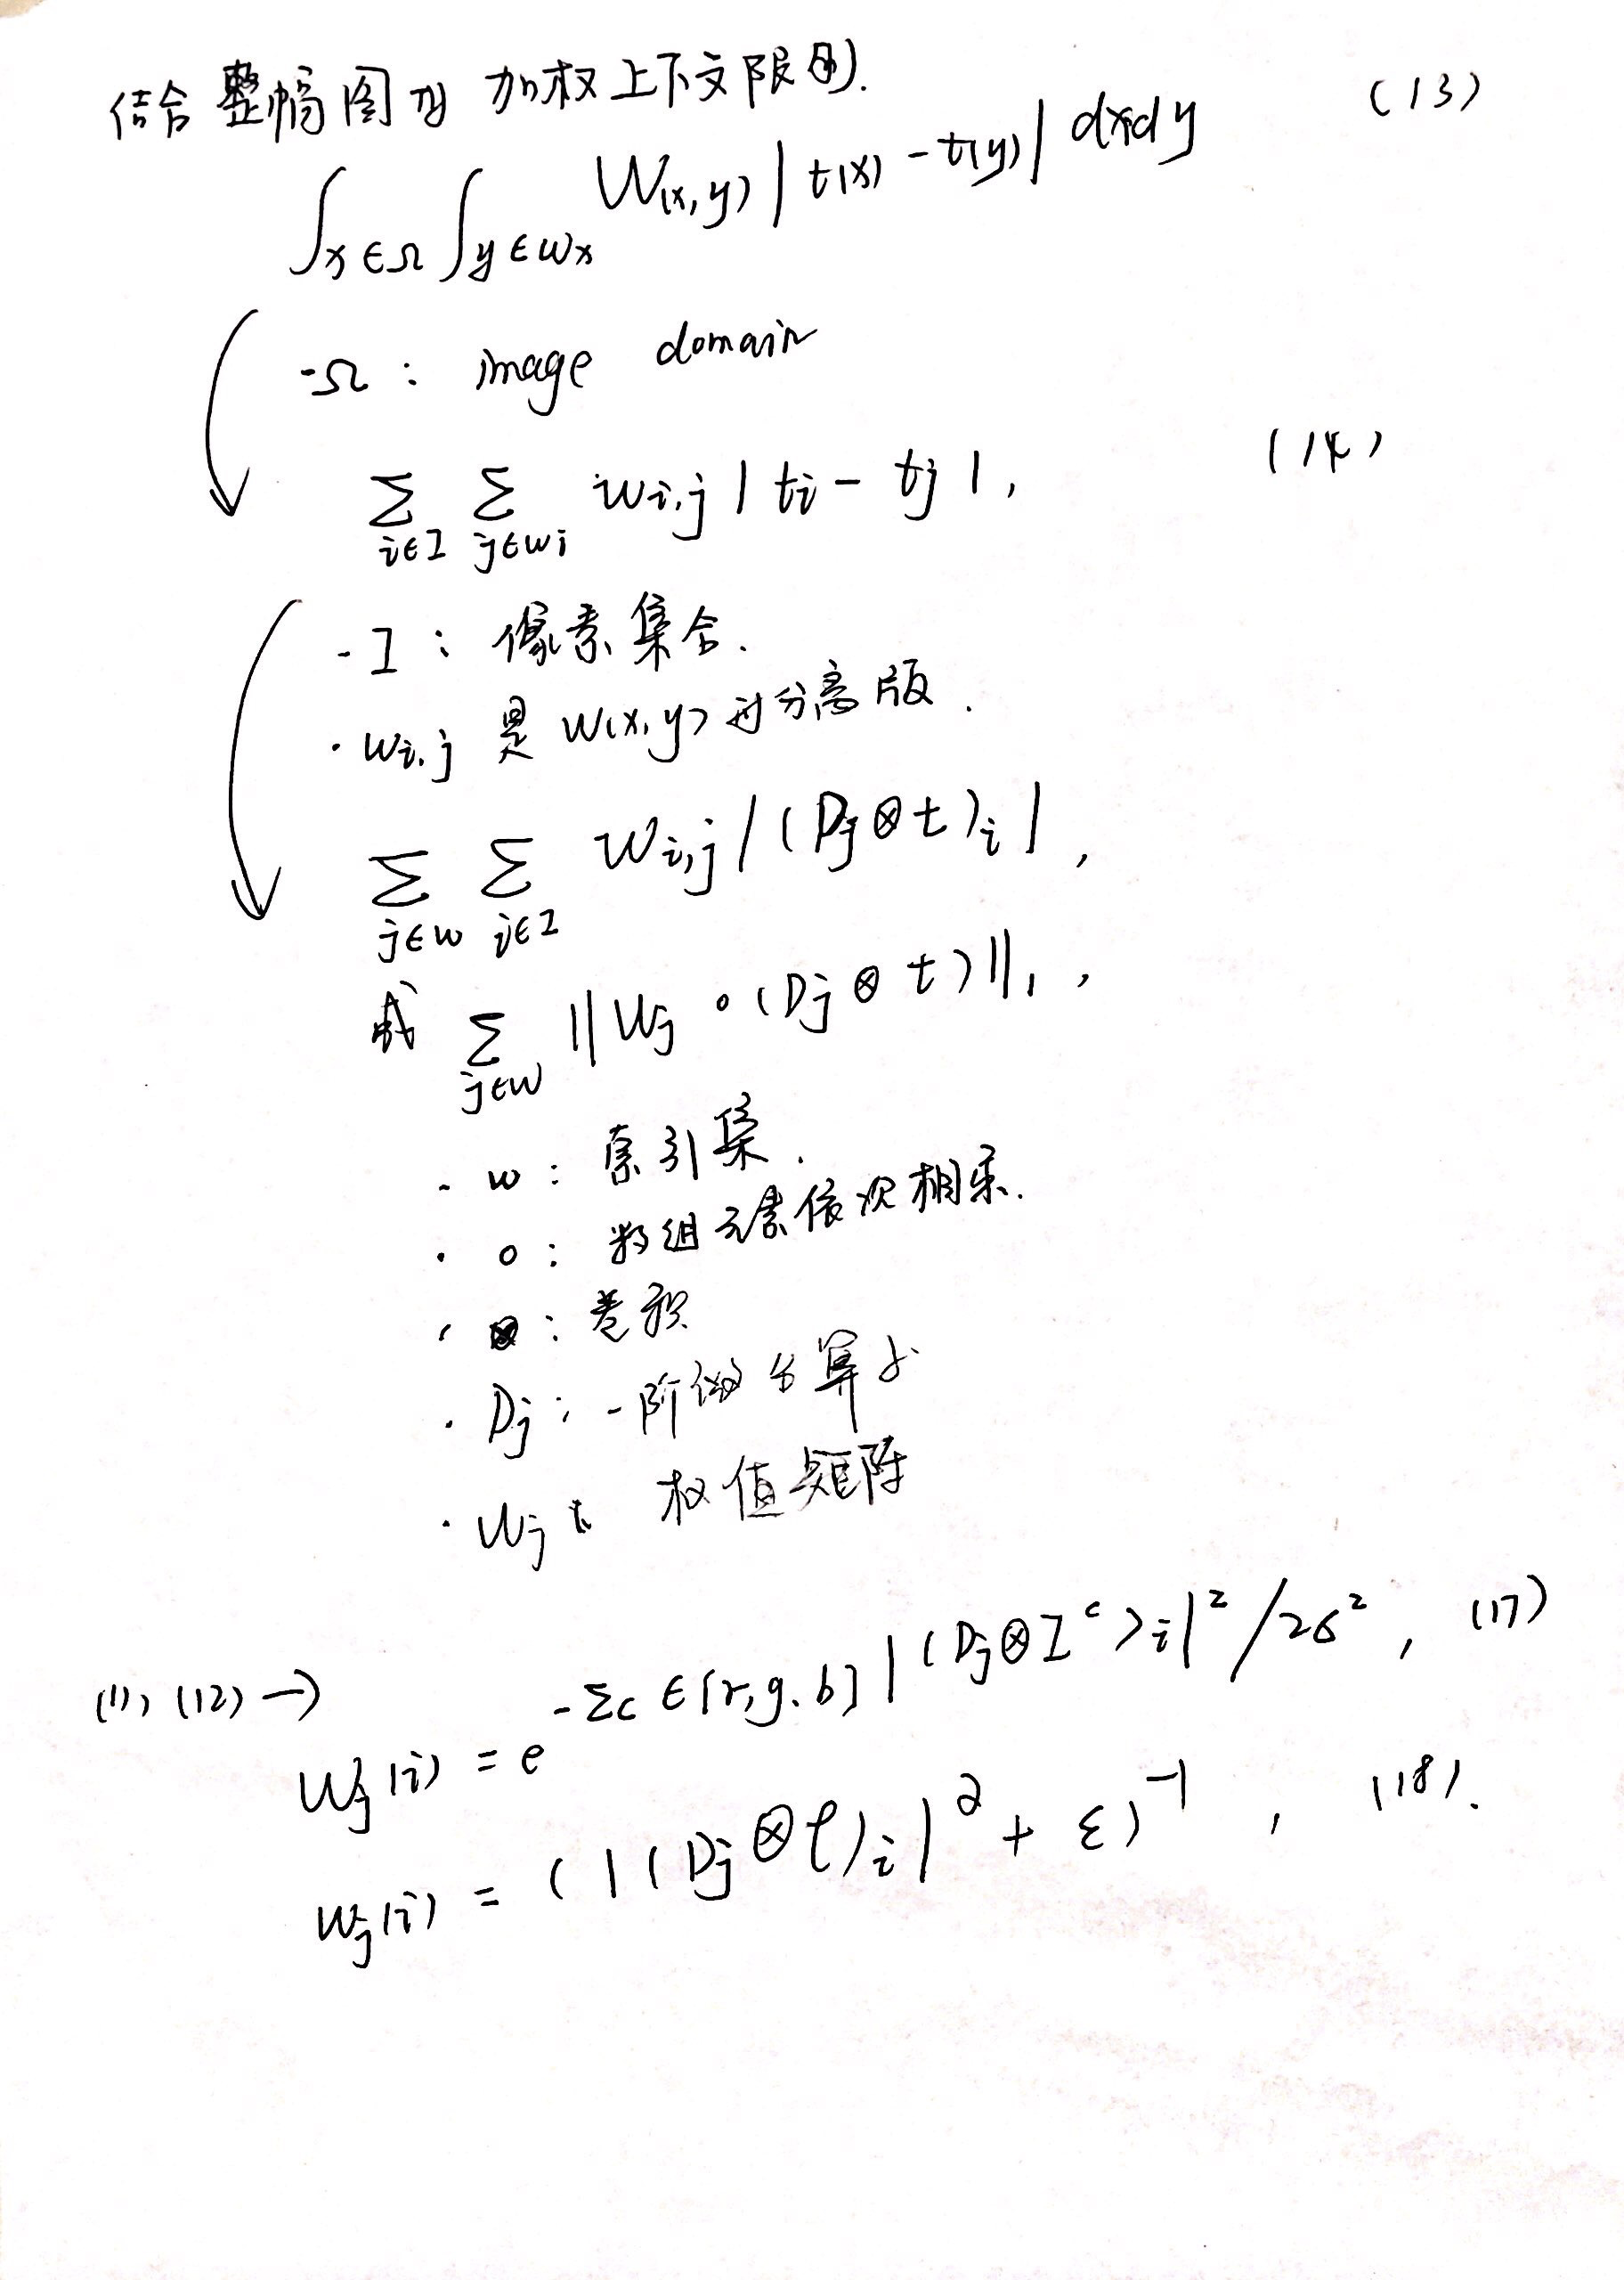 结合整幅图的加权上下文限制. (13)
∫x∈Ω ∫y∈wx W(x,y) | t(x) - t(y) | dxdy
-Ω: image domain
Σi∈I Σj∈wi wi,j | ti - tj |, (14)
- I: 像素集合.
· wi,j 是 W(x,y) 的分离版.
Σj∈w Σi∈I Wi,j | (Dj⊗t)i |,
或 Σj∈w ‖Wj ∘ (Dj⊗t)‖1,
- w: 索引集.
· ∘: 数组元素依次相乘.
· ⊗: 卷积
· Dj: 一阶微分算子
· Wj: 权值矩阵
(11), (12) → Wj(i) = e^{-Σc∈{r,g,b} | (Dj⊗I^c)i |^2 / 2σ^2}, (17)
Wj(i) = ( | (Dj⊗ℓ)i |^∂ + ε )^-1, (18).